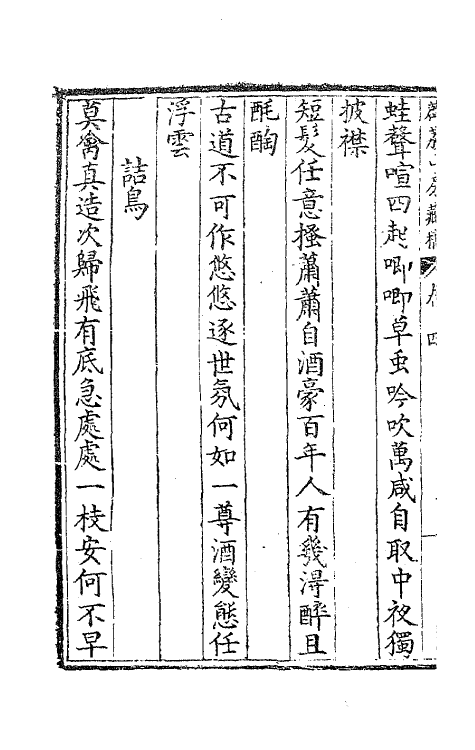 蛙聲喧四起唧唧草虫吟吹萬咸自取中夜獨
披襟
短髮任意搔蕭蕭自酒豪百年人有幾得醉且
酕醄
古道不可作悠悠逐世氛何如一尊酒變態任
浮雲
詰鳥
莫禽真造次歸飛有底急處處一枝安何不早